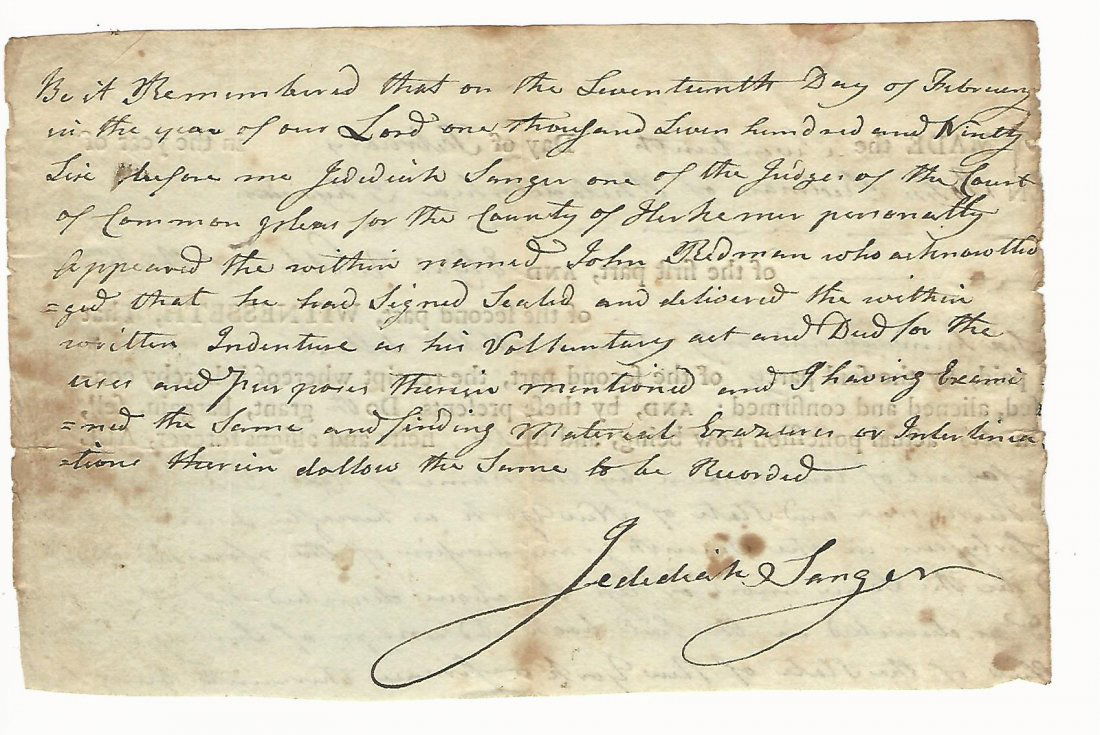 Be it Remembered that on the Seventeenth Day of February
in the year of our Lord one thousand Seven hundred and Ninety
Six before me Jedediah Sanger one of the Judges of the Court
of Common pleas for the County of Herkemer personally
Appeared the within named John Redman who acknowled
=ged that he had Signed Sealed and delivered the within
written Indenture as his Volluntary act and Deed for the
uses and Purposes therein mentioned and I having Exami
=ned the Same and finding Material Erazures or Interlinea
=tions therein do allow the Same to be Recorded
Jedediah Sanger